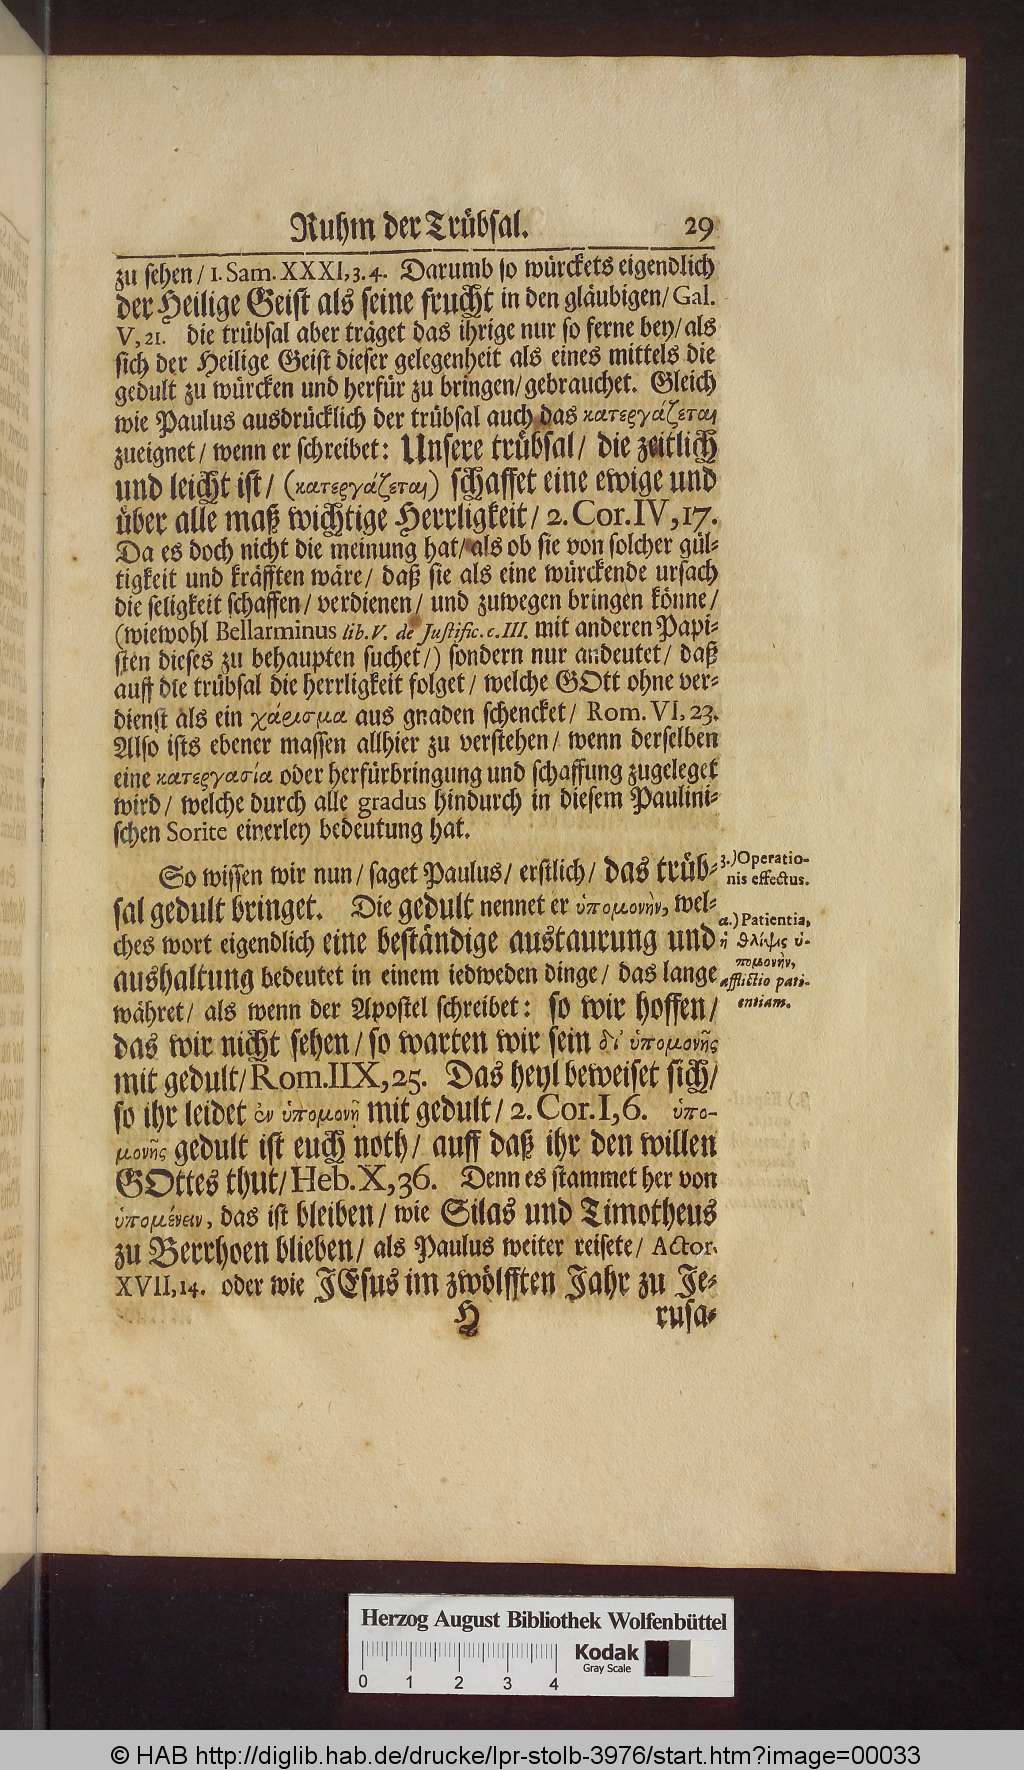 Ruhm der Trübsal. 29
zu sehen / 1. Sam. XXXI, 3. 4. Darumb so würckets eigendlich
der Heilige Geist als seine frucht in den gläubigen / Gal.
V, 21. die trübsal aber träget das ihrige nur so ferne bey / als
sich der Heilige Geist dieser gelegenheit als eines mittels die
gedult zu würcken und herfür zu bringen / gebrauchet. Gleich
wie Paulus ausdrücklich der trübsal auch das κατεργάζεται
zueignet / wenn er schreibet: Unsere trübsal / die zeitlich
und leicht ist / (κατεργάζεται) schaffet eine ewige und
über alle maß wichtige Herrligkeit / 2. Cor. IV, 17.
Da es doch nicht die meinung hat / als ob sie von solcher gül-
tigkeit und kräfften wäre / daß sie als eine würckende ursach
die seligkeit schaffen / verdienen / und zuwegen bringen könne /
(wiewohl Bellarminus lib. V. de Justific. c. III. mit anderen Papi-
sten dieses zu behaupten suchet /) sondern nur andeutet / daß
auff die trübsal die herrligkeit folget / welche GOtt ohne ver-
dienst als ein χάρισμα aus gnaden schencket / Rom. VI, 23.
Also ists ebener massen allhier zu verstehen / wenn derselben
eine κατεργασία oder herfürbringung und schaffung zugeleget
wird / welche durch alle gradus hindurch in diesem Paulini-
schen Sorite einerley bedeutung hat.
So wissen wir nun / saget Paulus / erstlich / das trüb-
sal gedult bringet. Die gedult nennet er ὑπομονὴν, wel-
ches wort eigendlich eine beständige austaurung und
aushaltung bedeutet in einem iedweden dinge / das lange
währet / als wenn der Apostel schreibet: so wir hoffen /
das wir nicht sehen / so warten wir sein δι' ὑπομονῆς
mit gedult / Rom. IIX, 25. Das heyl beweiset sich /
so ihr leidet ἐν ὑπομονῇ mit gedult / 2. Cor. I, 6. ὑπο-
μονῆς gedult ist euch noth / auff daß ihr den willen
GOttes thut / Heb. X, 36. Denn es stammet her von
ὑπομένειν, das ist bleiben / wie Silas und Timotheus
zu Berrhoen blieben / als Paulus weiter reisete / Actor.
XVII, 14. oder wie JEsus im zwölfften Jahr zu Je-
H rusa-
3.) Operatio-
nis effectus.
a.) Patientia,
ἡ θλίψις ὑ-
πομονὴν,
afflictio pati-
entiam.
Herzog August Bibliothek Wolfenbüttel
Kodak
Gray Scale
0 1 2 3 4
© HAB http://diglib.hab.de/drucke/lpr-stolb-3976/start.htm?image=00033